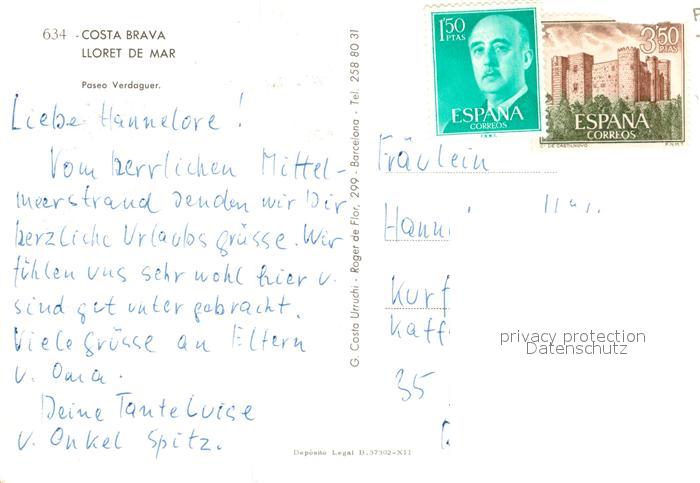 634 - COSTA BRAVA
LLORET DE MAR
Paseo Verdaguer.
Liebe Hannelore!
Vom herrlichen Mittel-
meerstrand senden wir Dir
herzliche Urlaubsgrüsse. Wir
fühlen uns sehr wohl hier u.
sind gut untergebracht.
Viele Grüsse an Eltern
u. Oma.
Deine Tante Luise
u. Onkel Spitz.
G. Costa Urruchi - Roger de Flor, 299 - Barcelona - Tel. 258 80 31
Depósito Legal B. 37302-XII
1'50
PTAS
ESPAÑA
CORREOS
F.N.M.T.
3'50
PTAS
ESPAÑA
CORREOS
C. DE CASTILNOVO
F.N.M.T.
Fräulein
Hann
Kurf
Kaff
privacy protection
Datenschutz
35